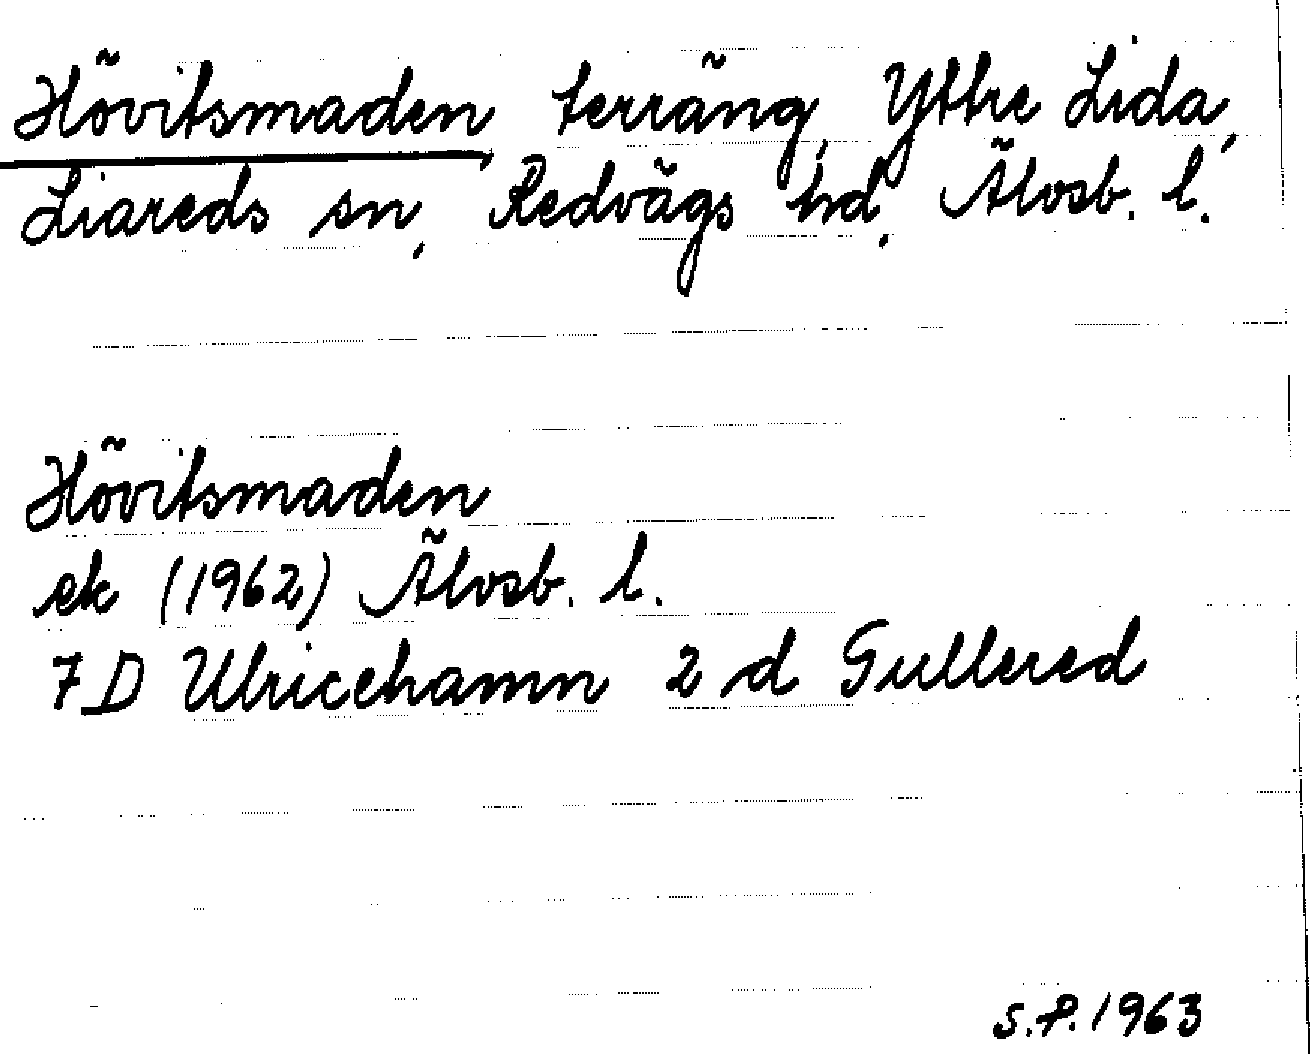 Hövitsmaden, terräng, Yttre Lida,
Liareds sn, Redvägs hd, Älvsb. l.
Hövitsmaden
ek (1962) Älvsb. l.
7 D Ulricehamn 2 d Gullered
S.P. 1963